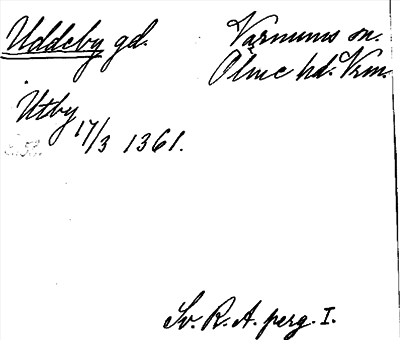 Uddeby gd. Varnums sn.
Ölme hd. Vrm.
Utby
17/3 1361.
Sv. R. A. perg. I.